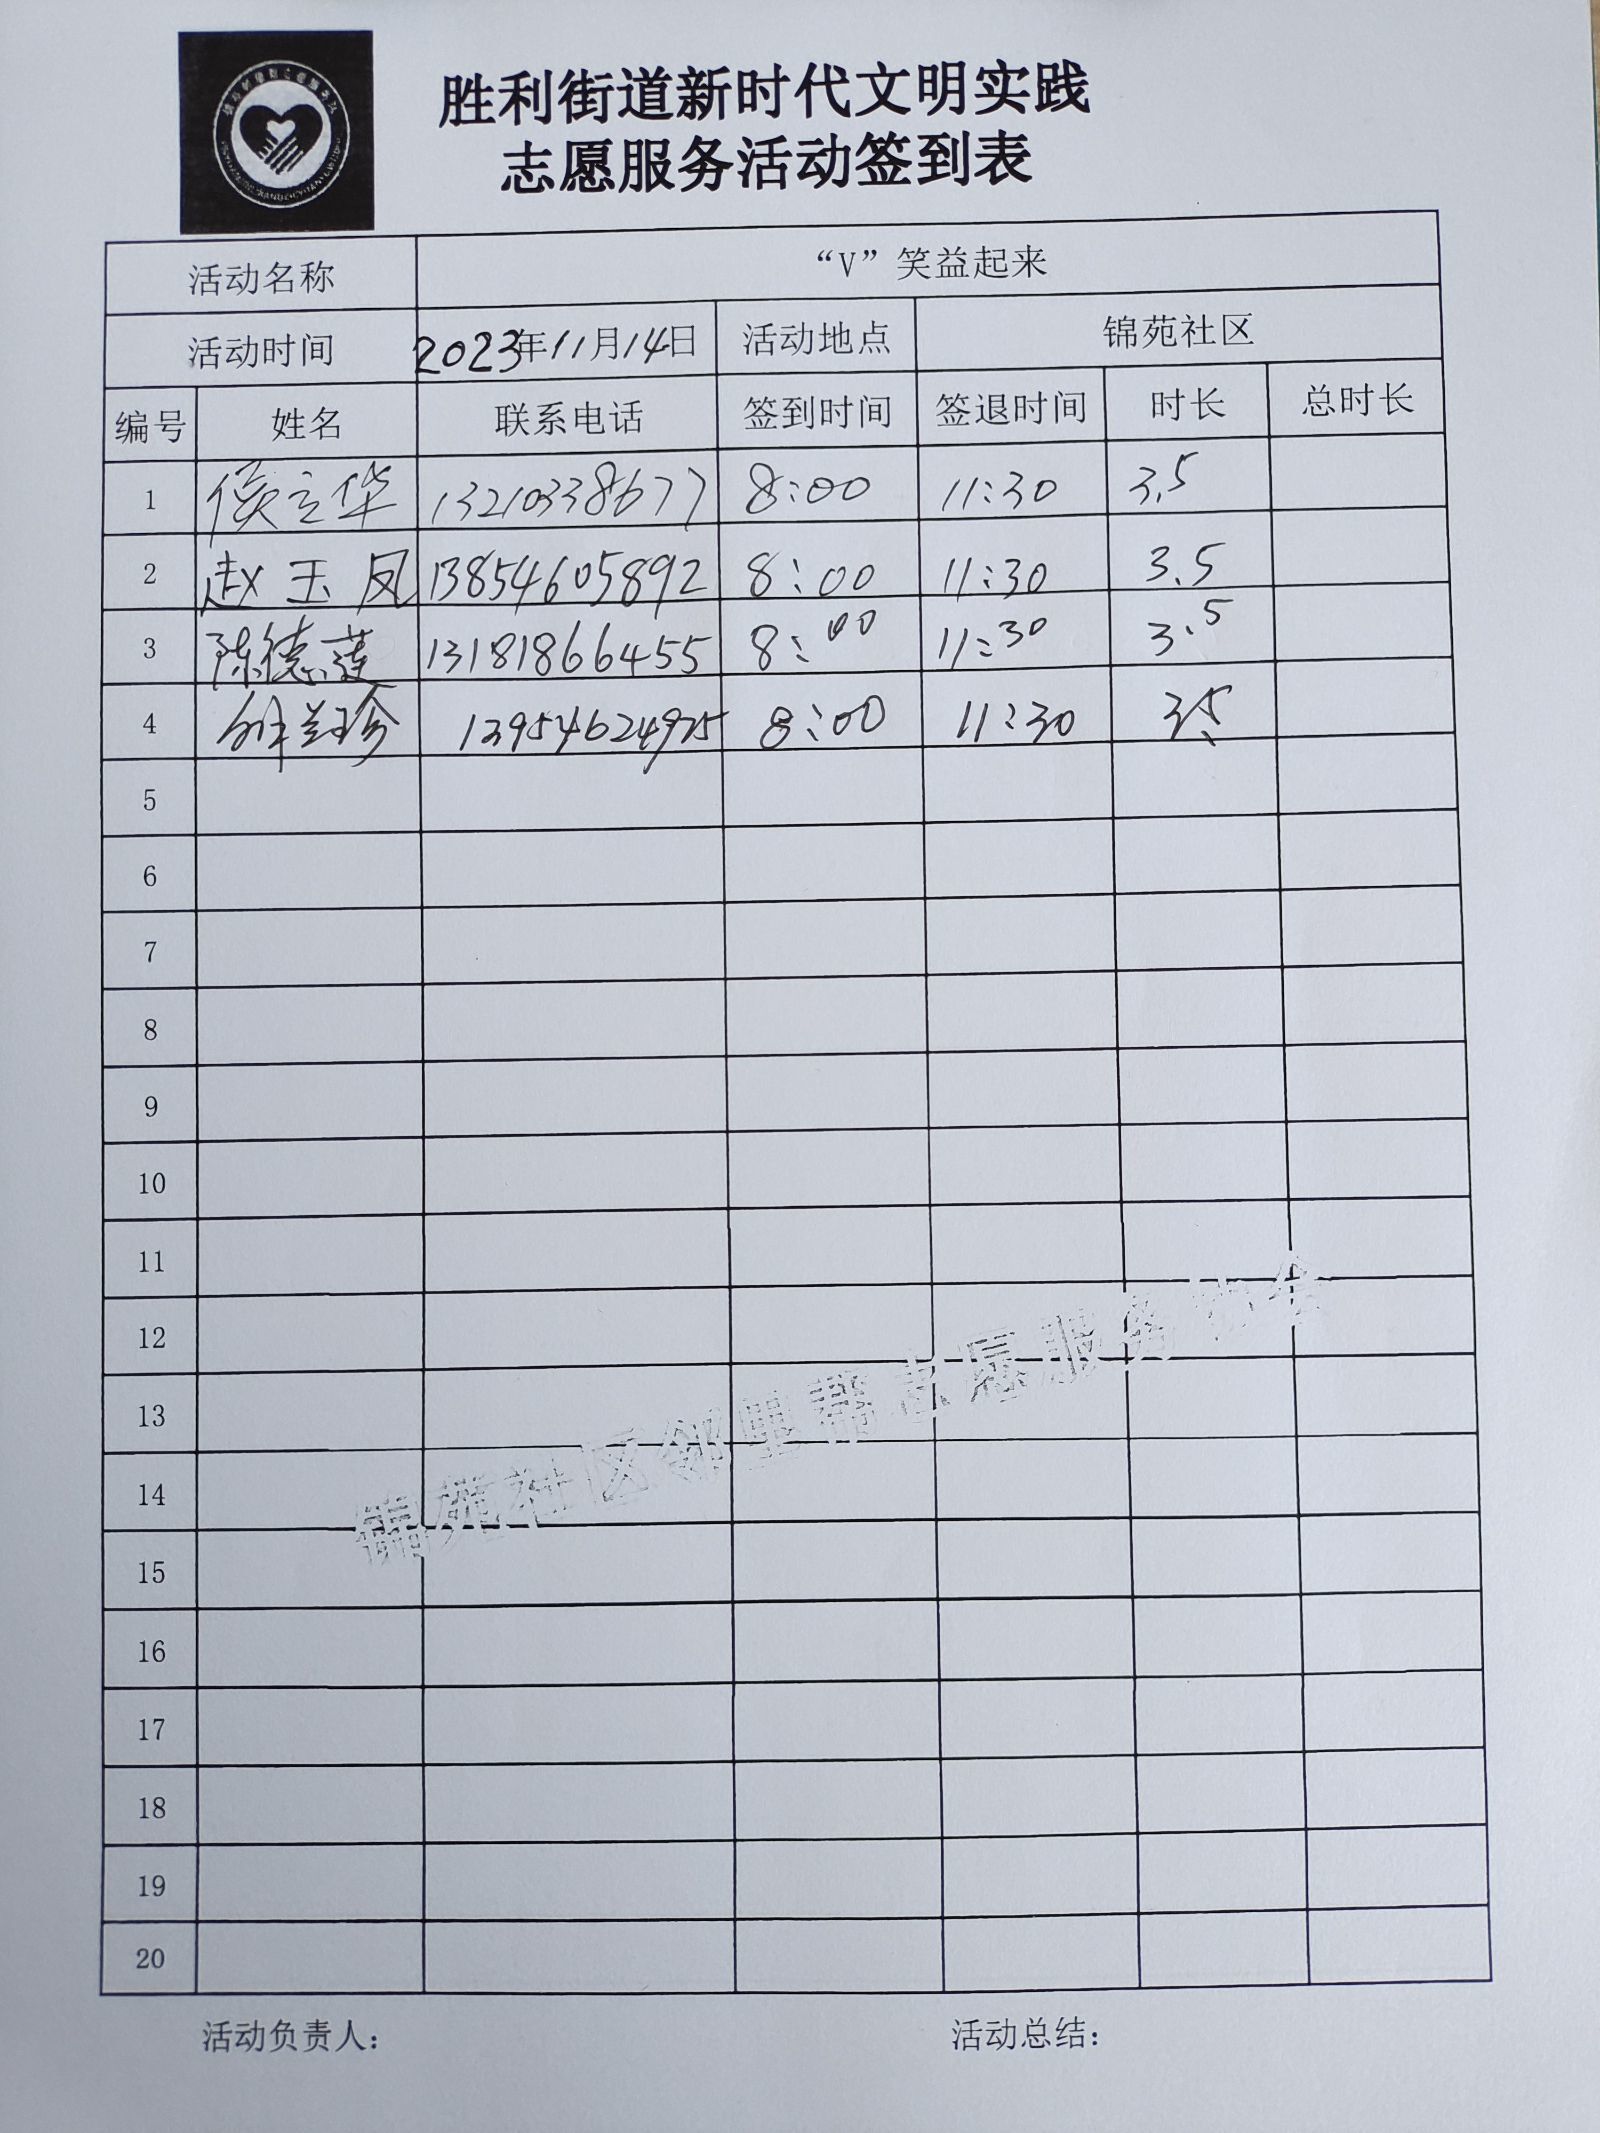 胜利街道新时代文明实践
志愿服务活动签到表
活动名称 “V”笑益起来
活动时间 2023年11月14日 活动地点 锦苑社区
编号 姓名 联系电话 签到时间 签退时间 时长 总时长
1 侯立华 13210338677 8:00 11:30 3.5
2 赵玉凤 13854605892 8:00 11:30 3.5
3 陈德莲 13181866455 8:00 11:30 3.5
4 13954624975 8:00 11:30 3.5
5
6
7
8
9
10
11
12
13
14
15
16
17
18
19
20
锦苑社区邻里帮志愿服务协会
活动负责人： 活动总结：